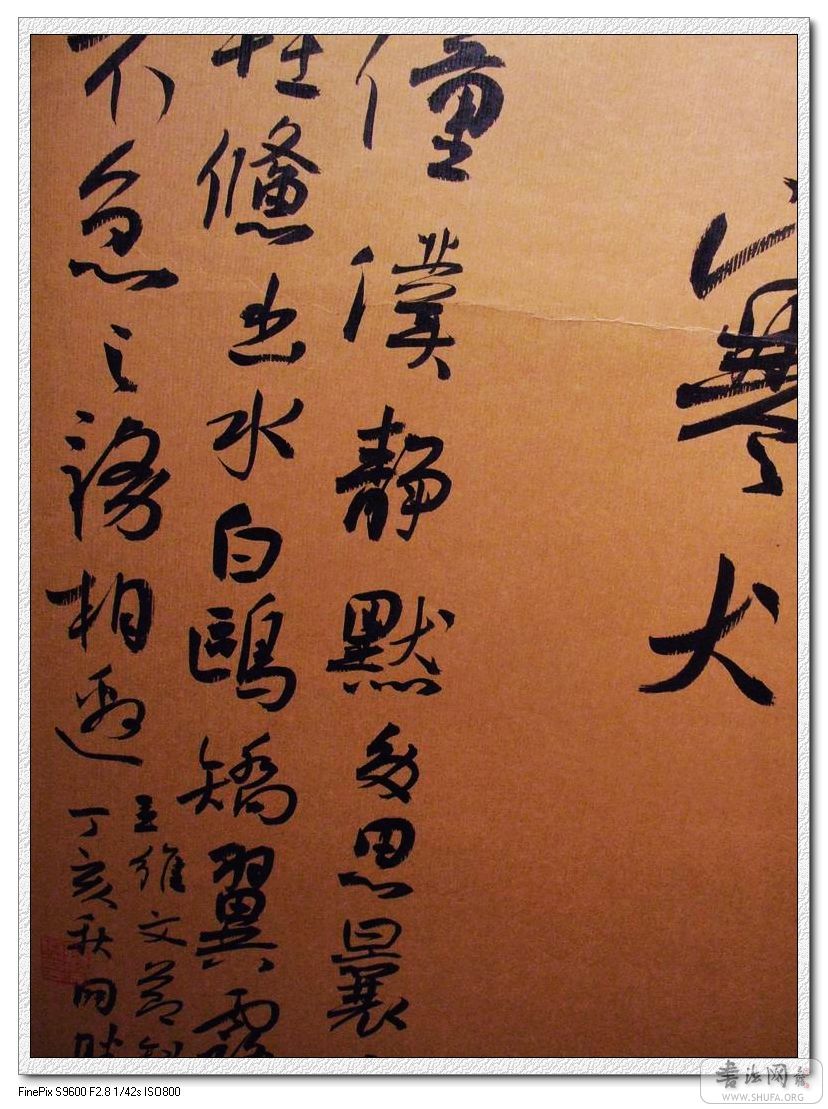 寒犬
僮僕静默多思曩
儵出水白鷗矯翼露
不急之務相邀
王維文節
丁亥秋
書法网
WWW.SHUFA.ORG
FinePix S9600 F2.8 1/42s ISO800